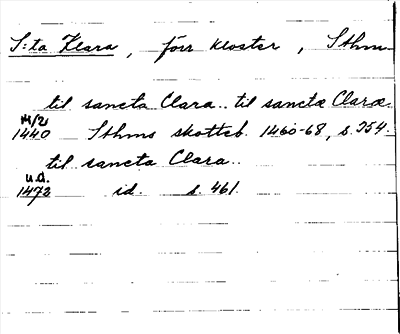 S:ta Klara, förr kloster, Sthm
til sancta Clara.. til sanctæ Claræ.
14/2
1440 Sthms skotteb. 1460-68, s. 254.
til sancta Clara..
u.d.
1472 id. s. 461.